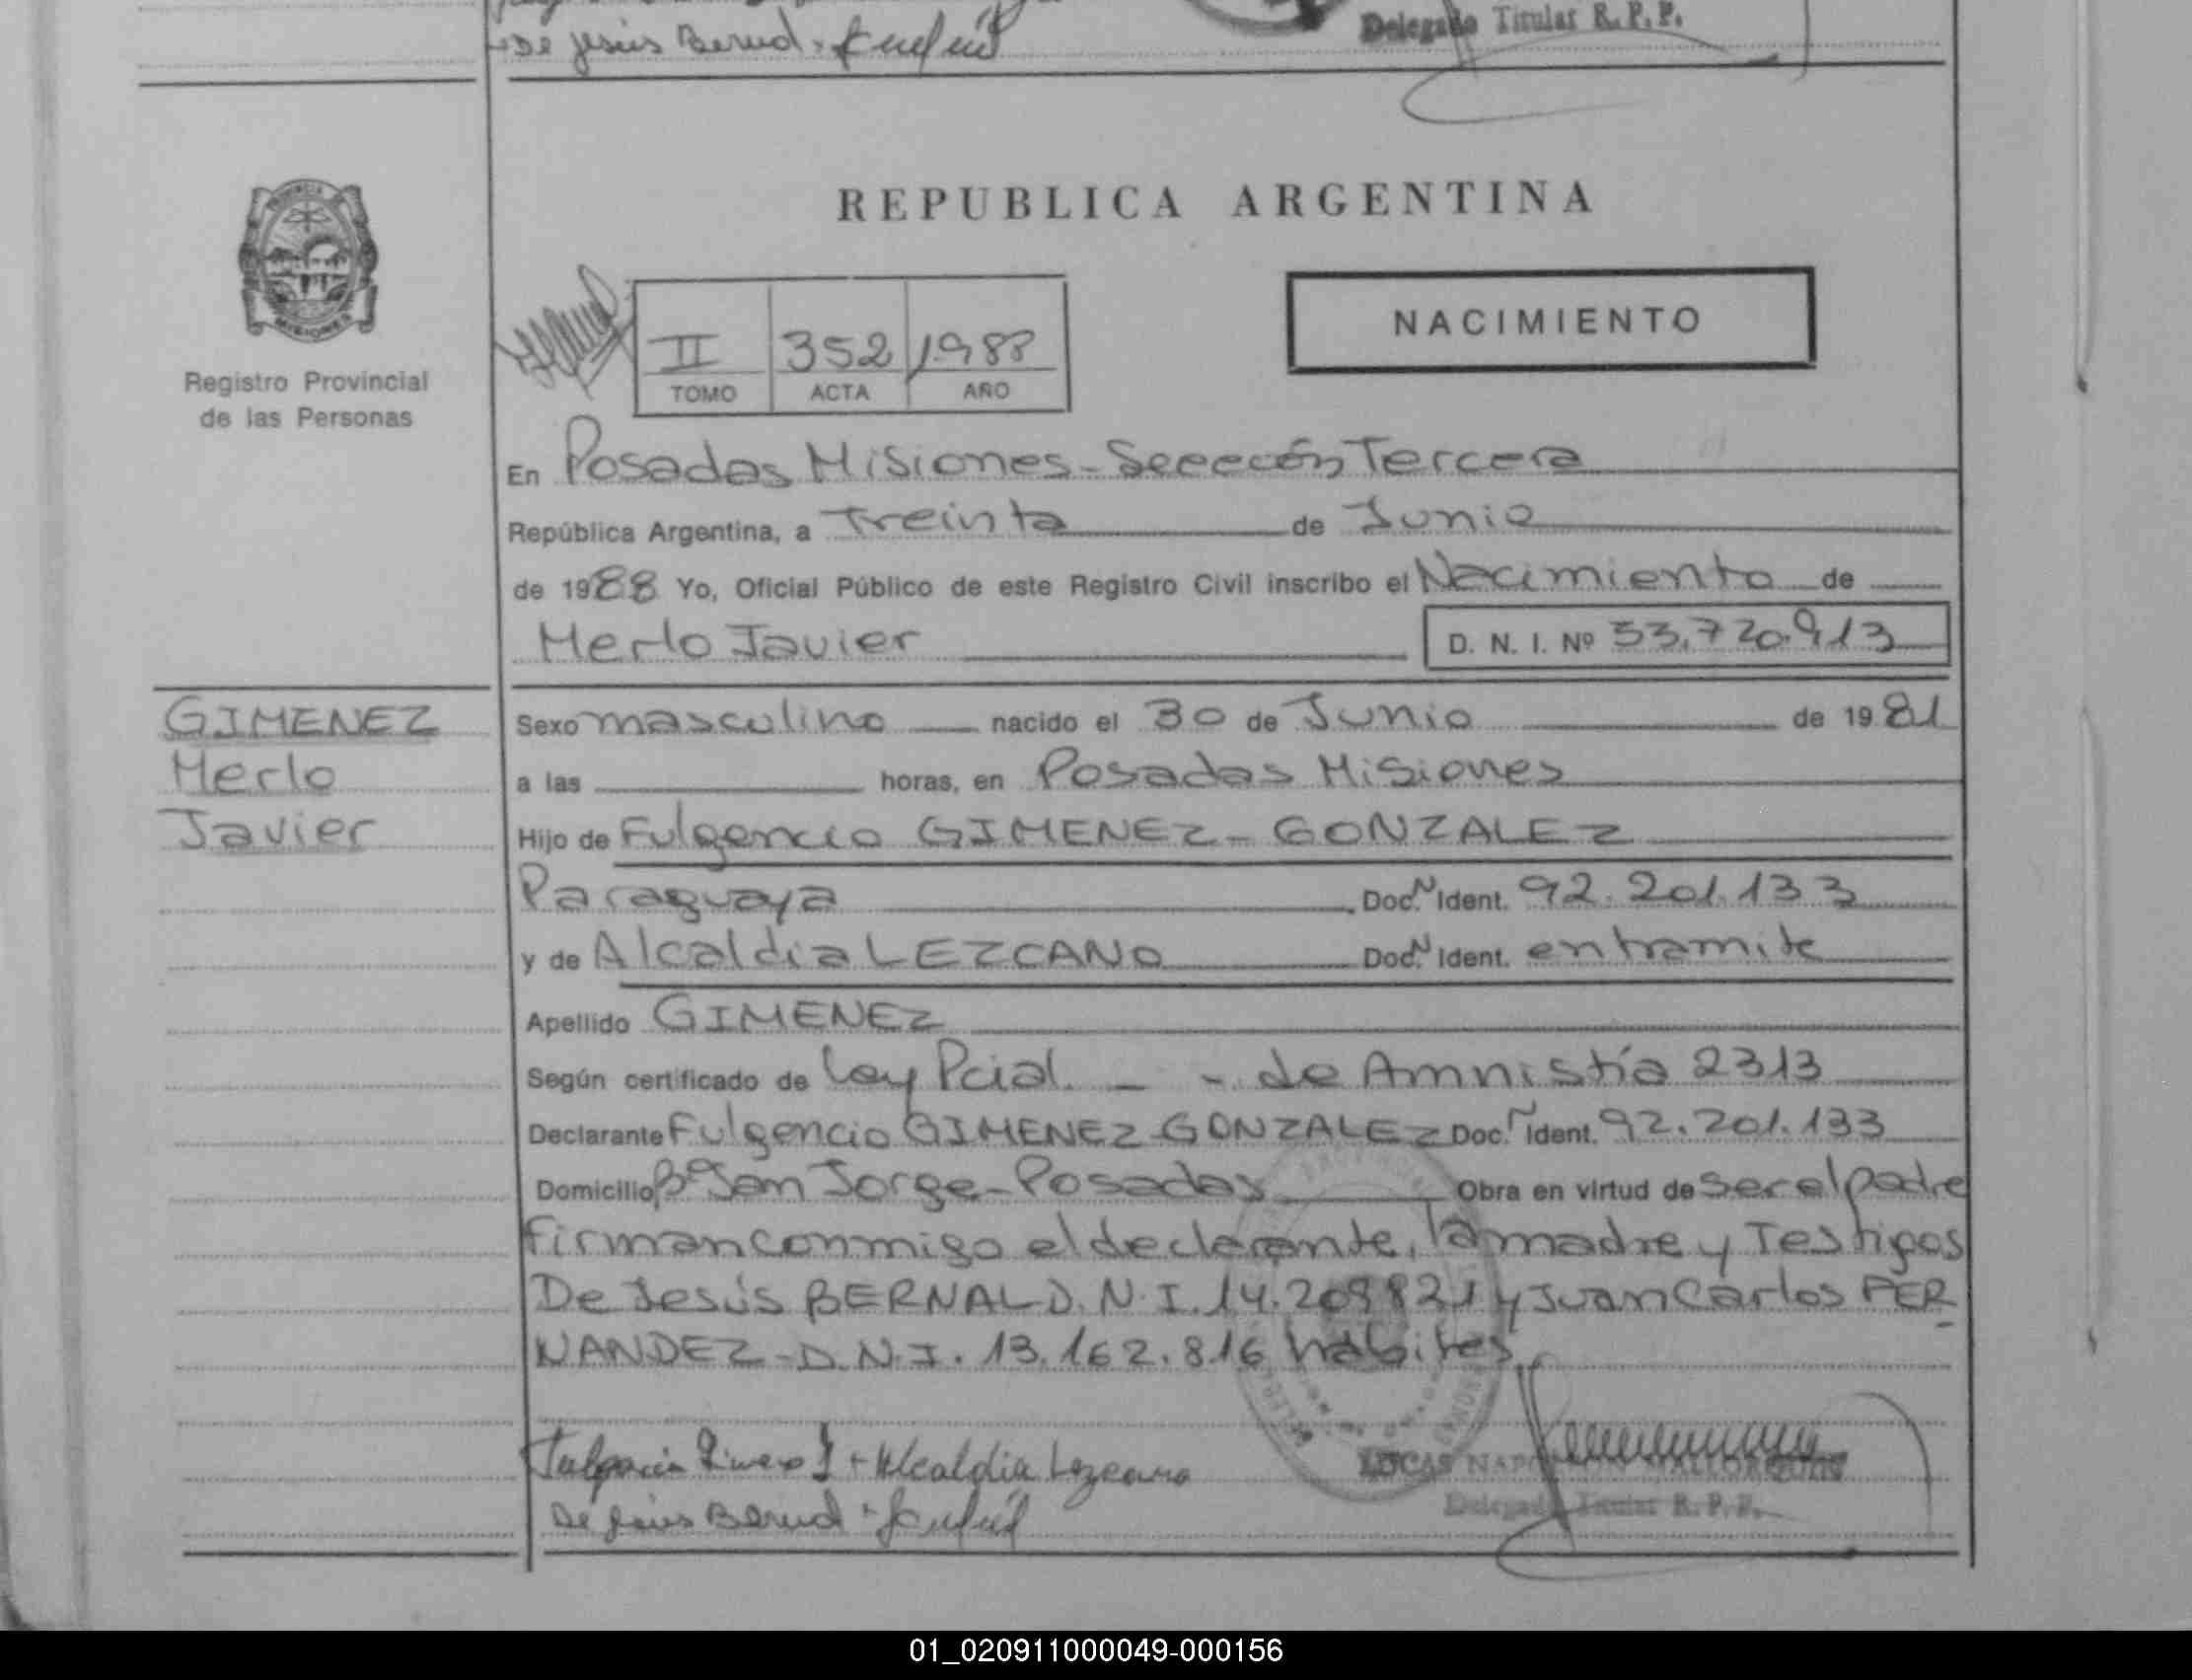 De Jesús Bernal
Delegado Titular R. P. P.
REPUBLICA ARGENTINA
NACIMIENTO
II 352 1988
TOMO ACTA AÑO
MISIONES
Registro Provincial
de las Personas
En Posadas Misiones - Sección Tercera
República Argentina, a Treinta de Junio
de 1988 Yo, Oficial Público de este Registro Civil inscribo el Nacimiento de
Merlo Javier D. N. I. Nº 33.720.913
GIMENEZ
Merlo
Javier
Sexo masculino nacido el 30 de Junio de 1981
a las horas, en Posadas Misiones
Hijo de Fulgencio GIMENEZ - GONZALEZ
Paraguaya Doc. N Ident. 92.201.133
y de Alcaldia LEZCANO Doc. N Ident. en tramite
Apellido GIMENEZ
Según certificado de Ley Pcial. - - de Amnistía 2313
Declarante Fulgencio GIMENEZ GONZALEZ Doc. N Ident. 92.201.133
Domicilio Bº San Jorge - Posadas Obra en virtud de ser el padre
firman conmigo el declarante, la madre y Testigos
De Jesús BERNAL D.N.I. 14.209821 y Juan Carlos FER
NANDEZ - D.N.I. 13.162.816 habiles
+ Alcaldia Lezcano
De Jesus Bernal
LUCAS
Delegado Titular R. P. P.
01_020911000049-000156